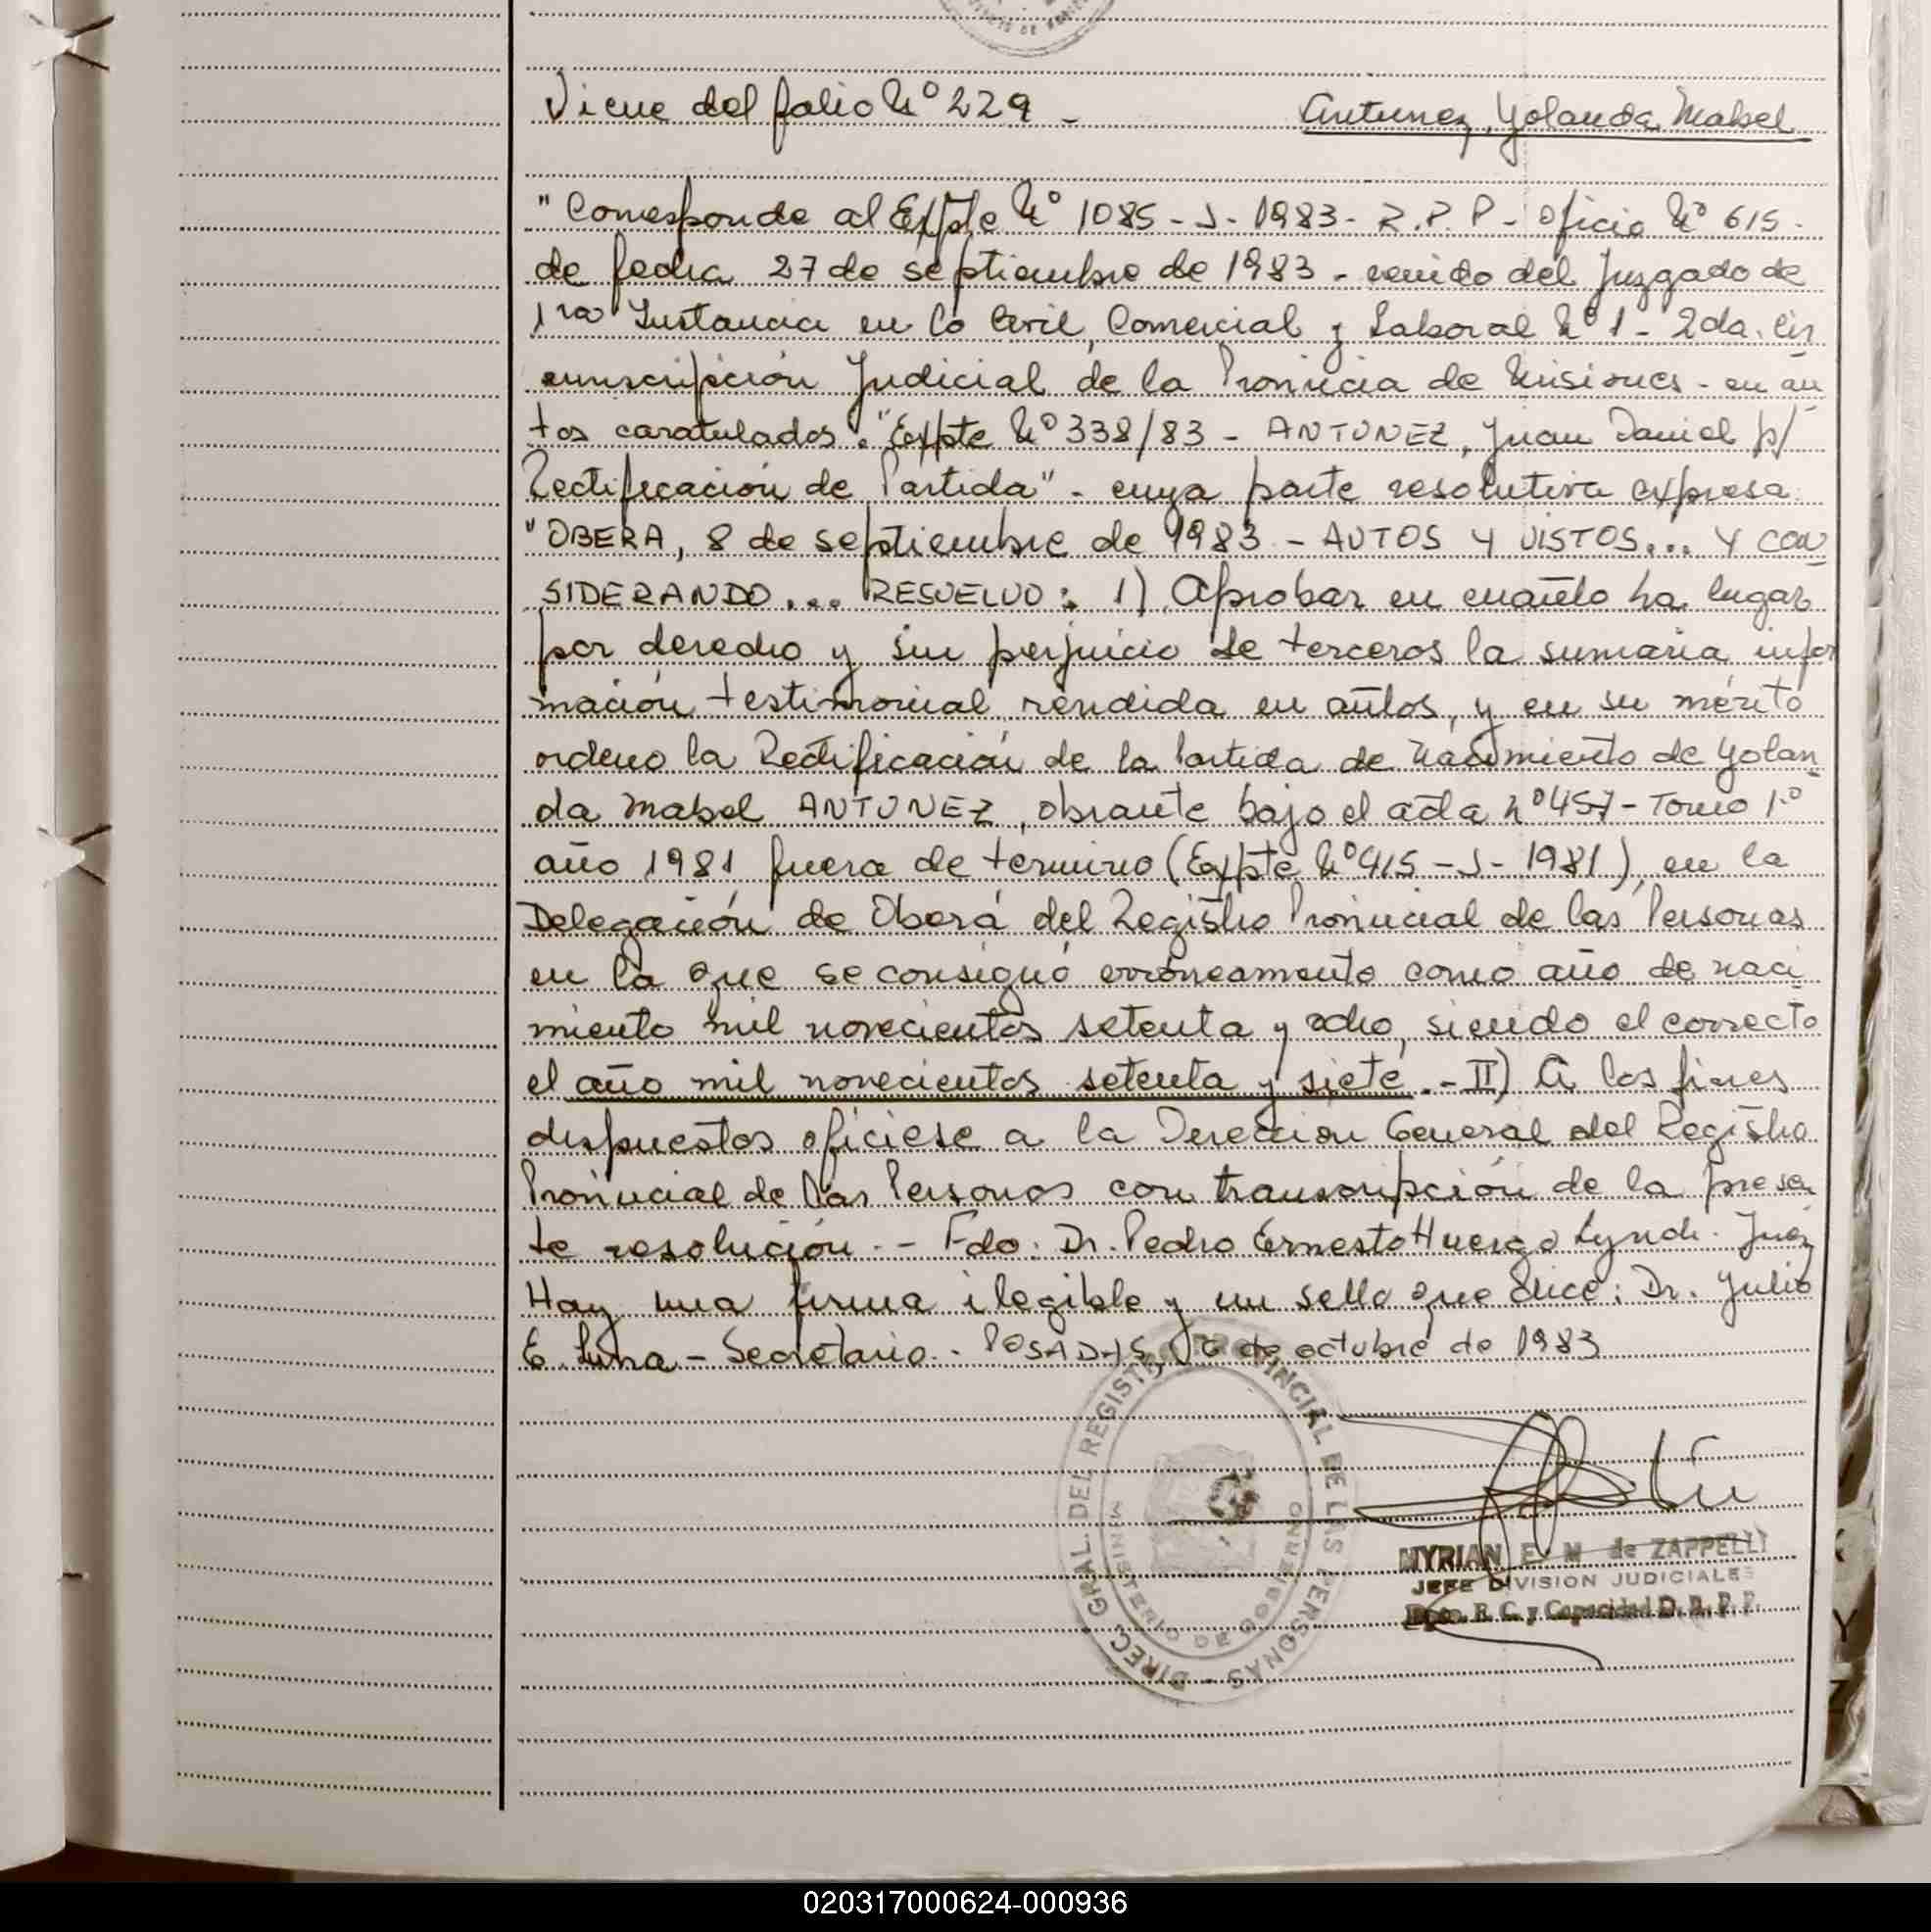 Viene del folio Nº 229 -
Antunez, Yolanda Mabel
"Corresponde al Expte Nº 1085 - J - 1983 - R.P.P - Oficio Nº 615 -
de fecha 27 de septiembre de 1983 - venido del Juzgado de
1ra Instancia en lo Civil, Comercial y Laboral Nº 1 - 2da. Cir
cunscripción Judicial de la Provincia de Misiones - en au
tos caratulados: "Expte Nº 338/83 - ANTUNEZ, Juan Daniel p/
Rectificación de Partida" - cuya parte resolutiva expresa:
"OBERA, 8 de septiembre de 1983 - AUTOS Y VISTOS... Y CON
SIDERANDO... RESUELVO: 1) Aprobar en cuanto ha lugar
por derecho y sin perjuicio de terceros la sumaria infor
mación testimonial rendida en autos, y en su mérito
ordeno la Rectificación de la Partida de Nacimiento de Yolan
da Mabel ANTUNEZ, obrante bajo el acta nº 457 - Tomo 1º
año 1981 fuera de termino (Expte Nº 415 - J - 1981), en la
Delegación de Oberá del Registro Provincial de las Personas
en la que se consignó erróneamente como año de naci
miento mil novecientos setenta y ocho, siendo el correcto
el año mil novecientos setenta y siete. - II) A los fines
dispuestos ofíciese a la Dirección General del Registro
Provincial de las Personas con transcripción de la presen
te resolución. - Fdo. Dr. Pedro Ernesto Huergo Lynch. Juez
Hay una firma ilegible y un sello que dice: Dr. Julio
E. Luna - Secretario. - POSADAS, de octubre de 1983
DIREC. GRAL. DEL REGISTRO PROVINCIAL DE LAS PERSONAS
MINISTERIO DE GOBIERNO
MYRIAN E. M de ZAPPELLI
JEFE DIVISION JUDICIALES
Dpto. R. C. y Capacidad D. R. P. P.
020317000624-000936